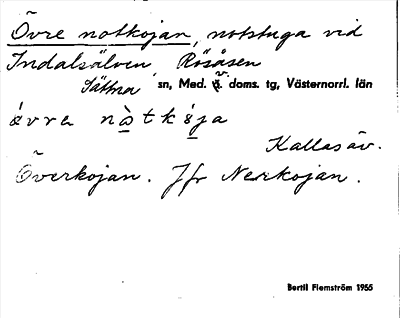 Övre notkojan, notstuga vid
Indalsälven Rösåsen
Sättna sn, Med. v. doms. tg, Västernorrl. län
ǿvrα nòtkǿja
Kallas äv.
Överkojan. Jfr Nerkojan.
Bertil Flemström 1955